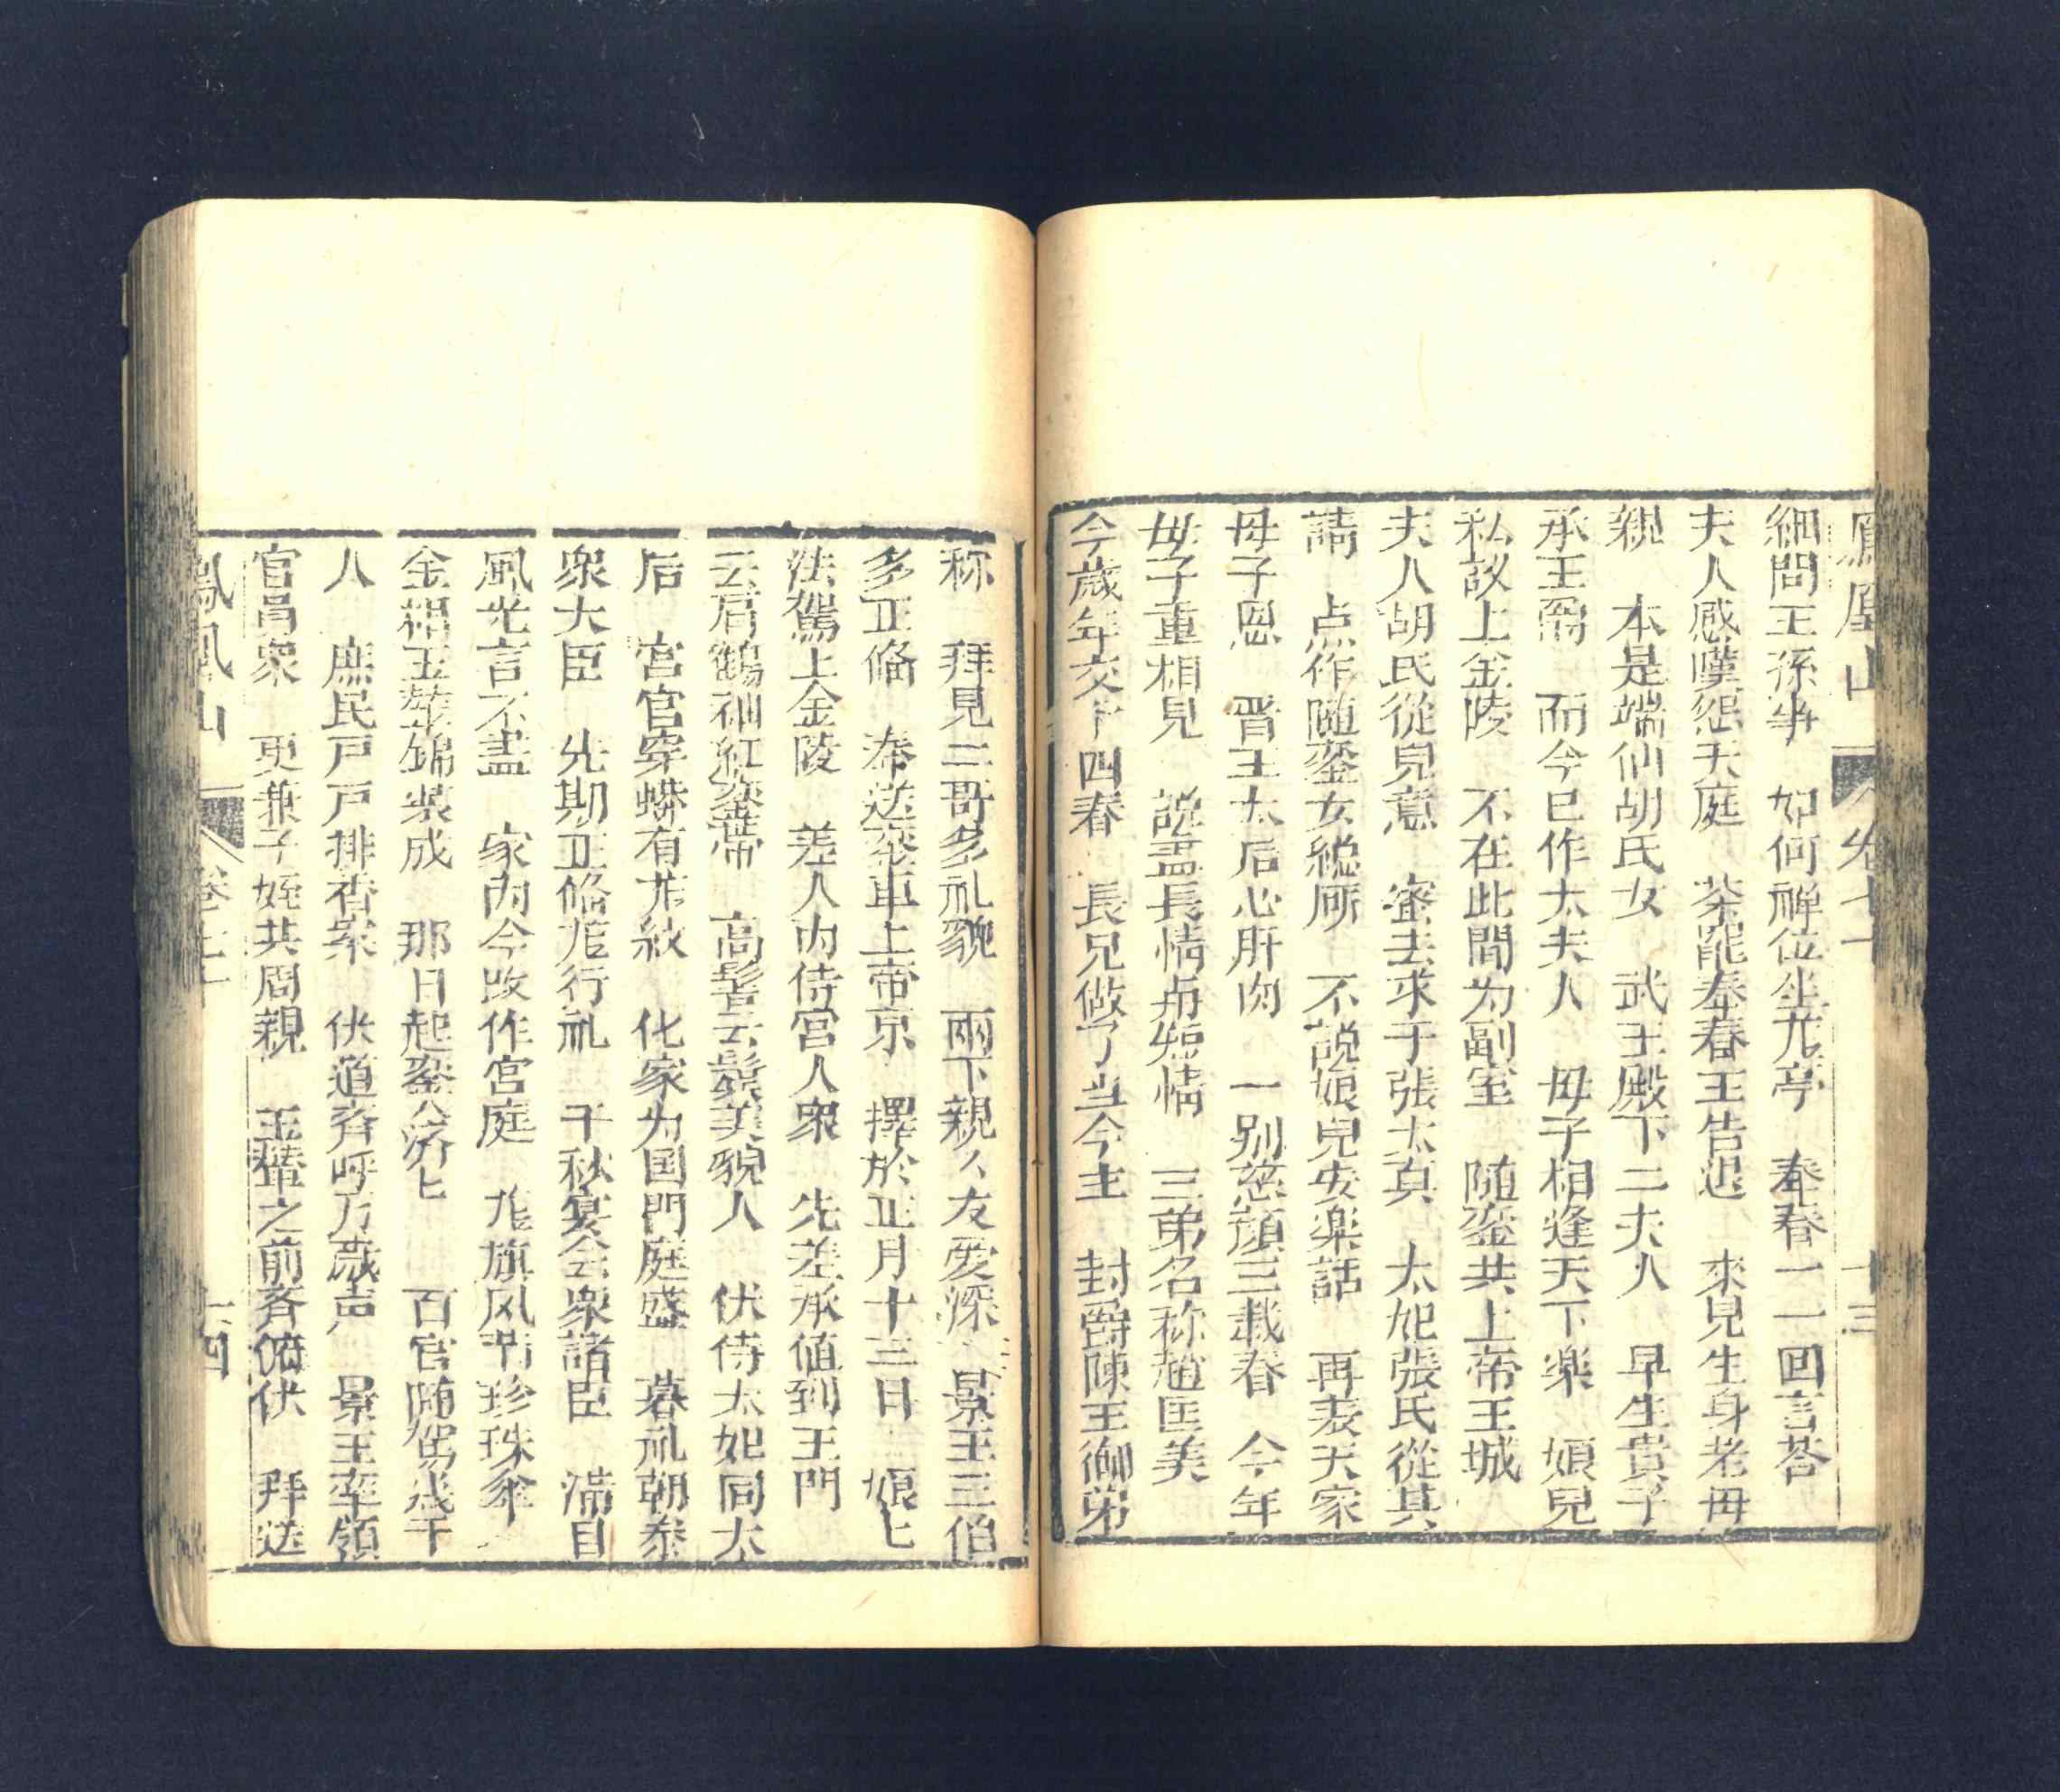 鳳凰山 卷七十 十三
細問王孫事 如何禅位坐尤亭 奉春一一回言荅
夫人感嘆怨天庭 茶罷奉春王告退 來見生身老母
親 本是端仙胡氏女 武王殿下二夫人 早生貴子
承王爵 而今已作太夫人 母子相逢天下楽 娘兒
私议上金陵 不在此間为副室 随鑾共上帝王城
夫人胡氏從兒意 蜜去求于張太真 太妃張氏從其
請 点作随鑾女総厨 不説娘兒安楽話 再表天家
母子恩 晋王太后心肝肉 一别慈顔三載春 今年
母子重相見 説盡長情舟短情 三弟名称趙匡美
今歳年交十四春 長兄做了当今主 封爵陳王御弟
称 拜見二哥多礼貌 兩下親人友愛深 景王三伯
多正偹 奉送鑾車上帝京 擇於正月十三日 娘七
法駕上金陵 差人内侍宮人衆 先差承值到王門
云肩鶴袖紅鑾帶 高髻云鬟美貌人 伏侍太妃同太
后 宮官穿蟒有尨紋 化家为国門庭盛 暮礼朝泰
衆大臣 先期正偹尨行礼 千秋宴会衆諸臣 滿目
風光言不盡 家内今改作宮庭 尨旗风幂珍珠傘
金裀玉輦錦裝成 那日起鑾人济七 百官随駕幾千
人 庶民戸戸排香案 伏道齐呼万歳声 景王率領
官昌衆 更兼子姪共周親 玉輦之前斉俯伏 拜送
鳳凰山 卷七十 十四